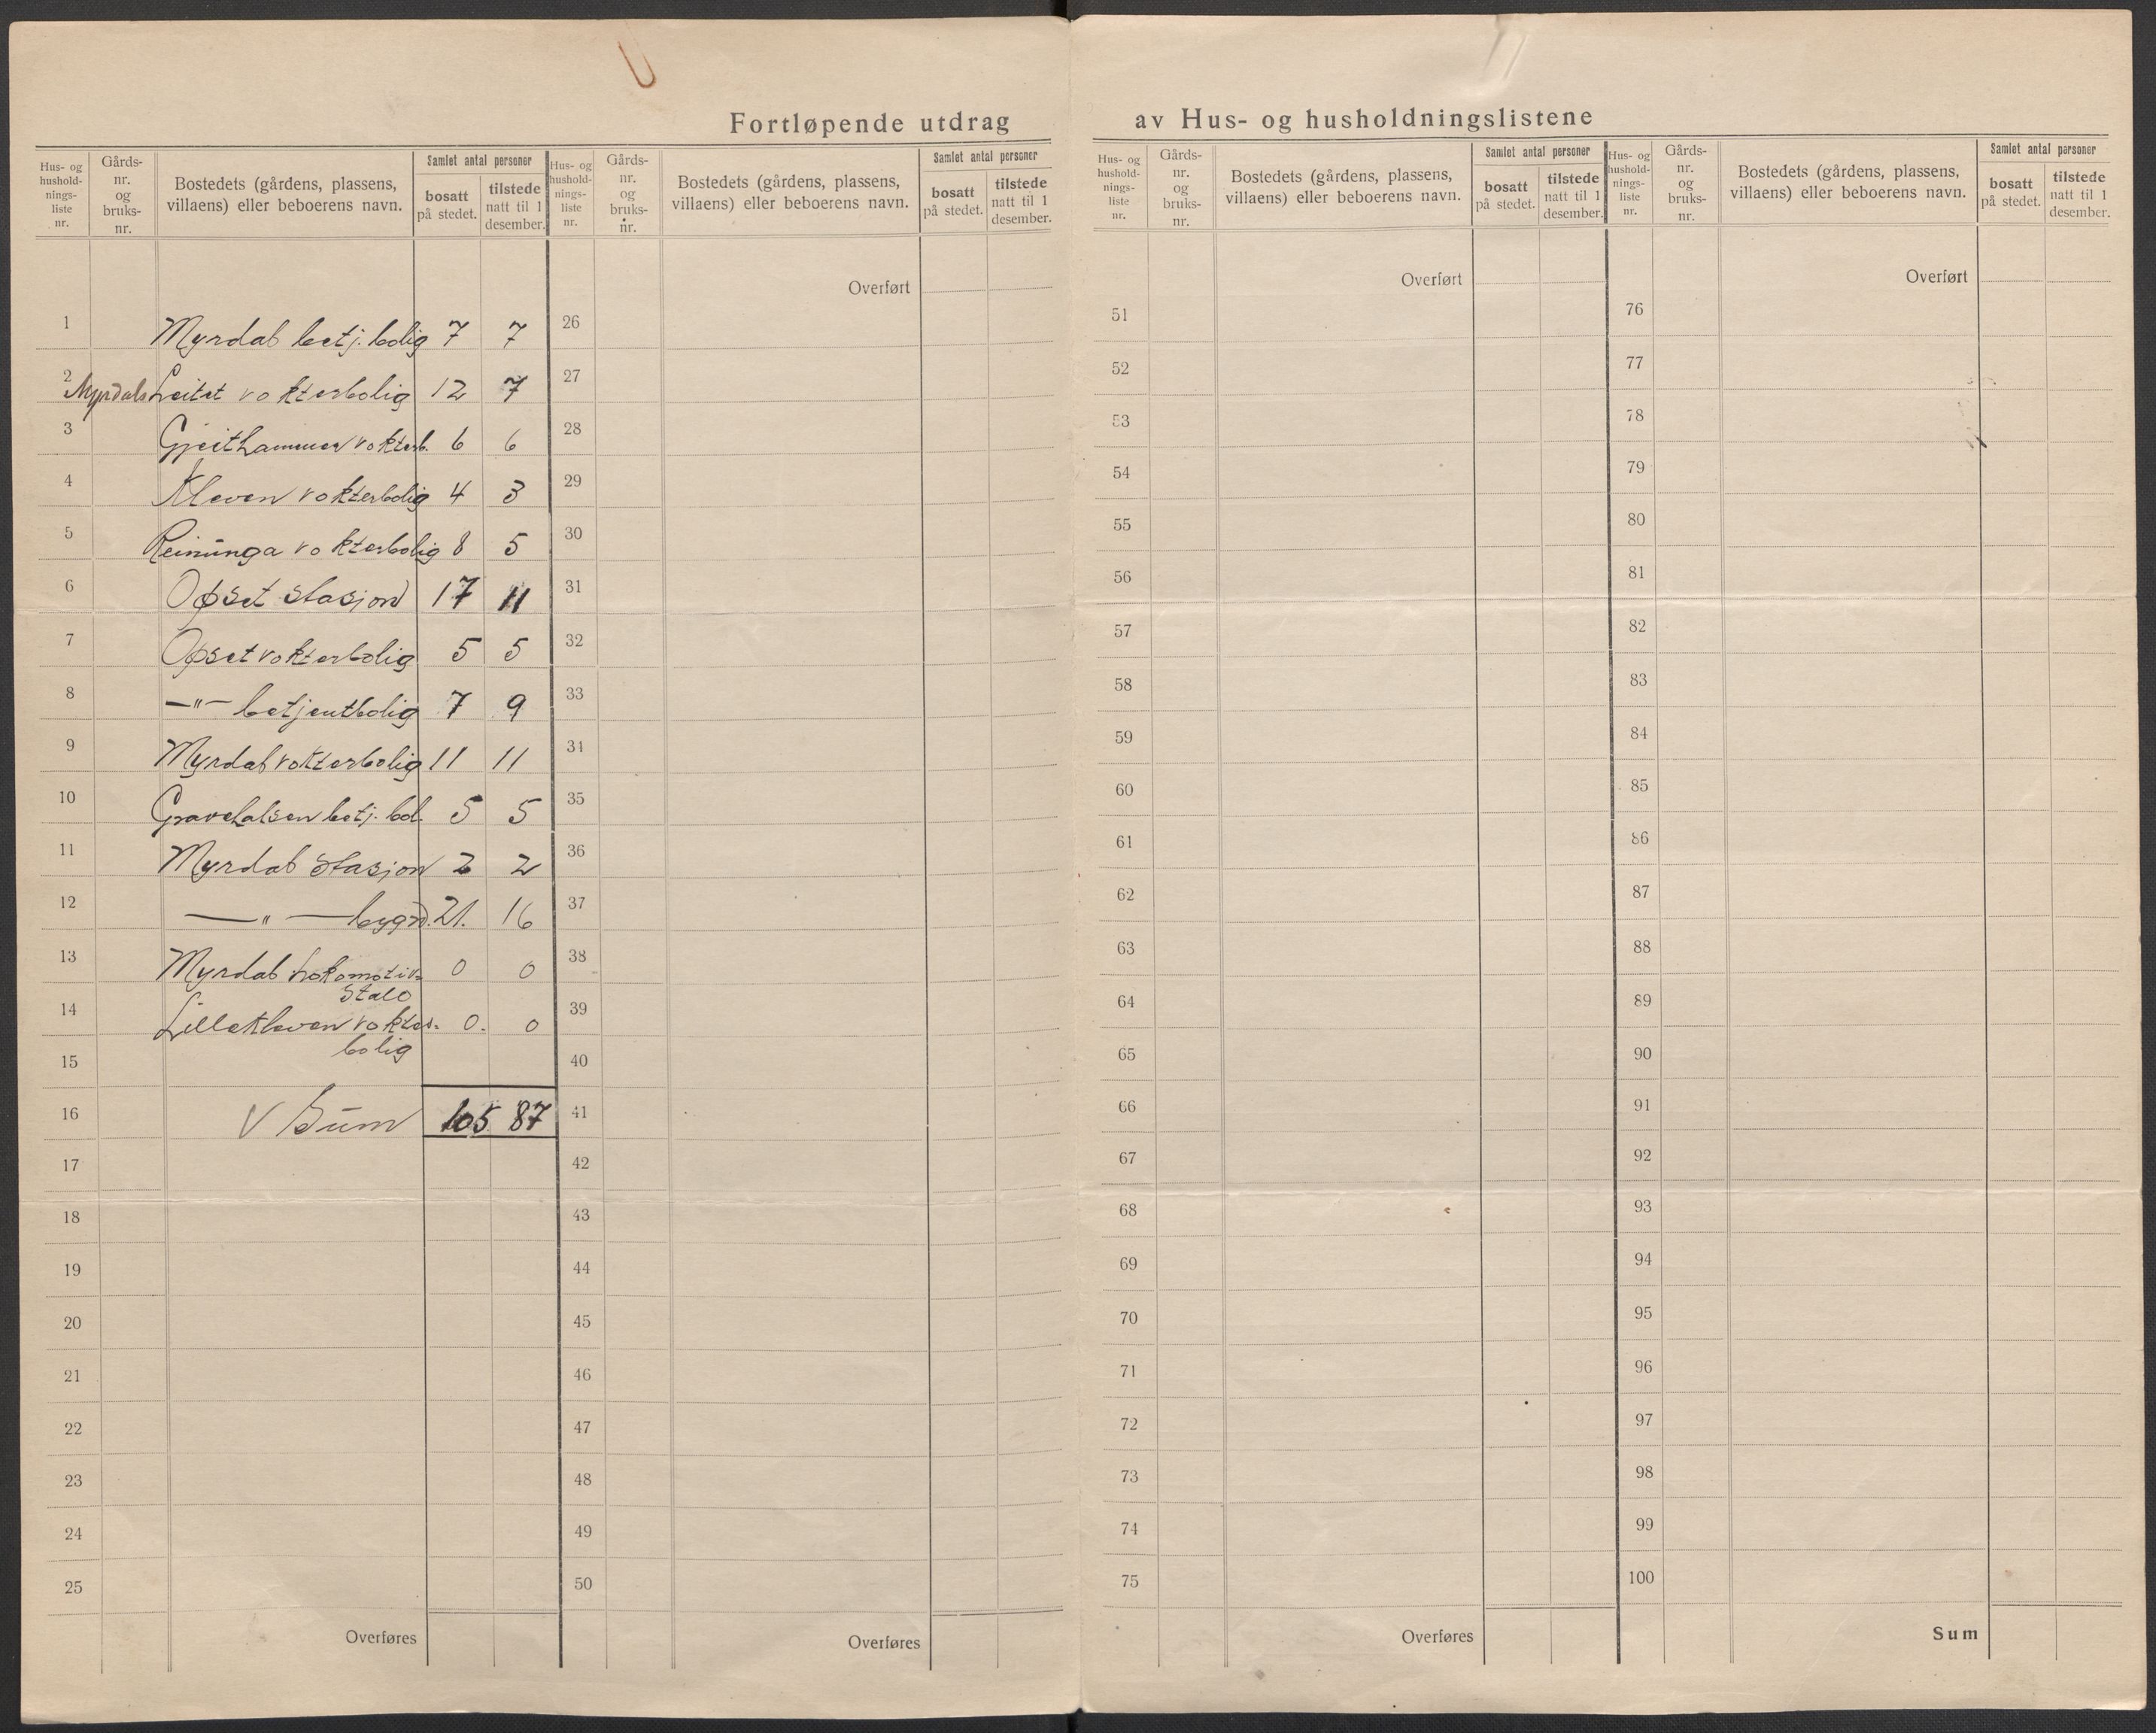 Fortløpende utdrag av Hus- og husholdningslistene
Hus- og husholdnings-liste nr. Gårds-nr. og bruks-nr. Bostedets (gårdens, plassens, villaens) eller beboerens navn. Samlet antal personer bosatt på stedet. tilstede natt til 1 desember.
Hus- og husholdnings-liste nr. Gårds-nr. og bruks-nr. Bostedets (gårdens, plassens, villaens) eller beboerens navn. Samlet antal personer bosatt på stedet. tilstede natt til 1 desember.
Hus- og husholdnings-liste nr. Gårds-nr. og bruks-nr. Bostedets (gårdens, plassens, villaens) eller beboerens navn. Samlet antal personer bosatt på stedet. tilstede natt til 1 desember.
Hus- og husholdnings-liste nr. Gårds-nr. og bruks-nr. Bostedets (gårdens, plassens, villaens) eller beboerens navn. Samlet antal personer bosatt på stedet. tilstede natt til 1 desember.
1 Myrdal betj. bolig 7 7
2 Myrdals Leitet vokterbolig 12 7
3 Gjeithammer vokterb. 6 6
4 Kleven vokterbolig 4 3
5 Reinunga vokterbolig 8 5
6 Opset stasjon 17 11
7 Opset vokterbolig 5 5
8 —"— betjentbolig 7 9
9 Myrdal vokterbolig 11 11
10 Gravehalsen betj. bol. 5 5
11 Myrdal stasjon 2 2
12 —"— bygn. 21. 16
13 Myrdal Lokomotiv- 0 0
stall
14 Lillekleven vokter- 0. 0
bolig
15
16 V Sum 105 87
17
18
19
20
21
22
23
24
25
Overføres
Overført
26
27
28
29
30
31
32
33
34
35
36
37
38
39
40
41
42
43
44
45
46
47
48
49
50
Overføres
Overført
51
52
53
54
55
56
57
58
59
60
61
62
63
64
65
66
67
68
69
70
71
72
73
74
75
Overføres
Overført
76
77
78
79
80
81
82
83
84
85
86
87
88
89
90
91
92
93
94
95
96
97
98
99
100
Sum